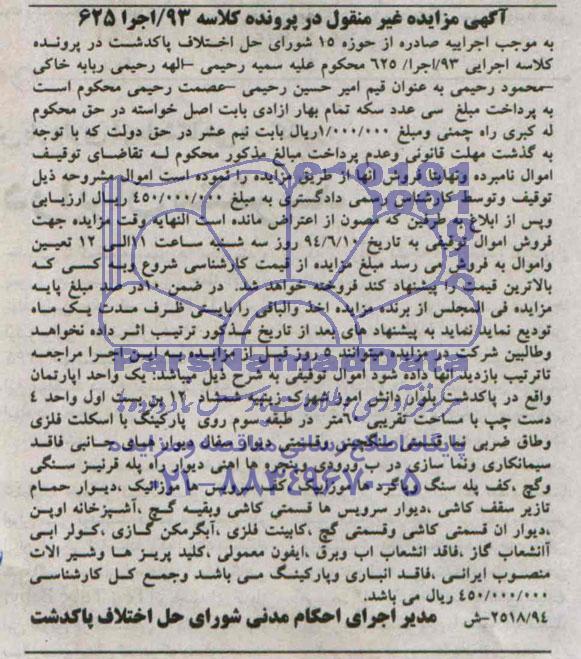 آگهی مزایده غیر منقول در پرونده کلاسه ۹۳/اجرا ۶۲۵
به موجب اجراییه صادره از حوزه ۱۵ شورای حل اختلاف پاکدشت در پرونده
کلاسه اجرایی ۹۳/اجرا/ ۶۲۵ محکوم علیه سمیه رحیمی –الهه رحیمی ربابه خاکی
–محمود رحیمی به عنوان قیم امیر حسین رحیمی –عصمت رحیمی محکوم است
به پرداخت مبلغ سی عدد سکه تمام بهار ازادی بابت اصل خواسته در حق محکوم
له کبری راه چمنی ومبلغ ۱/۰۰۰/۰۰۰ریال بابت نیم عشر در حق دولت که با توجه
به گذشت مهلت قانونی وعدم پرداخت مبالغ مذکور محکوم لـه تقاضای توقیف
اموال نامبرده ونهایتا فروش آنها از طریق مزایده را نموده است اموال مشروحه ذیل
توقیف وتوسط کارشناس رسمی دادگستری به مبلغ ۴۵۰/۰۰۰/۰۰۰ ریال ارزیابی
وپس از ابلاغ به طرفین که مصون از اعتراض مانده است النهایه وقت مزایده جهت
فروش اموال توقیفی به تاریخ ۹۴/۶/۱۰ روز سه شنبه ساعت ۱۱الی ۱۲ تعیین
واموال به فروش می رسد مبلغ مزایده از قیمت کارشناسی شروع وبه کسی که
بالاترین قیمت را پیشنهاد کند فروخته خواهد شد. در ضمن ۱۰در صد مبلغ پایه
مزایده فی المجلس از برنده مزایده اخذ والباقی را بایستی ظرف مدت یک ماه
تودیع نماید نماید به پیشنهاد های بعد از تاریخ مذکور ترتیب اثر داده نخواهد
وطالبین شرکت در مزایده میتوانند ۵ روز قبل از مزایده به این اجرا مراجعه
تاترتیب بازدید آنها داده شود اموال توقیفی به شرح ذیل میباشد: یک واحد اپارتمان
واقع در پاکدشت بلوار دانش اموز شهرک زیتیه شمشاد ۱۲ بن بست اول واحد ۴
دست چپ با مساحت تقریبی ۶۰متر در طبقه سوم روی پارکینگ با اسکلت فلزی
وطاق ضربی نما قسمتی سنگچینی وقسمتی دیوار سفال دیوار های جانبی فاقد
سیمانکاری ونما سازی در ب ورودی وپنجره ها اهنی دیوار راه پله قرنیز سنگی
وگچ ،کف پله سنگ وپاگرد ها موزاییک ،کف سرویس ها موزائیک ،دیوار حمام
تازیر سقف کاشی ،دیوار سرویس ها قسمتی کاشی وبقیه گچ ،آشپزخانه اوپن
،دیوار ان قسمتی کاشی وقسمتی گچ ،کابینت فلزی ،آبگرمکن گازی ،کولر ابی
آانشعاب گاز ،فاقد انشعاب اب وبرق ،ایفون معمولی ،کلید پریز ها وشیر الات
منصوب ایرانی ،فاقد انباری وپارکینگ می باشد وجمع کل کارشناسی
۴۵۰/۰۰۰/۰۰۰ ریال می باشد.
۲۵۱۸/۹۴–ش مدیر اجرای احکام مدنی شورای حل اختلاف پاکدشت
ParsNamadData
پایگاه اطلاع رسانی مناقصه و مزایده
۰۲۱-۸۸۳۴۹۶۷۰-۵